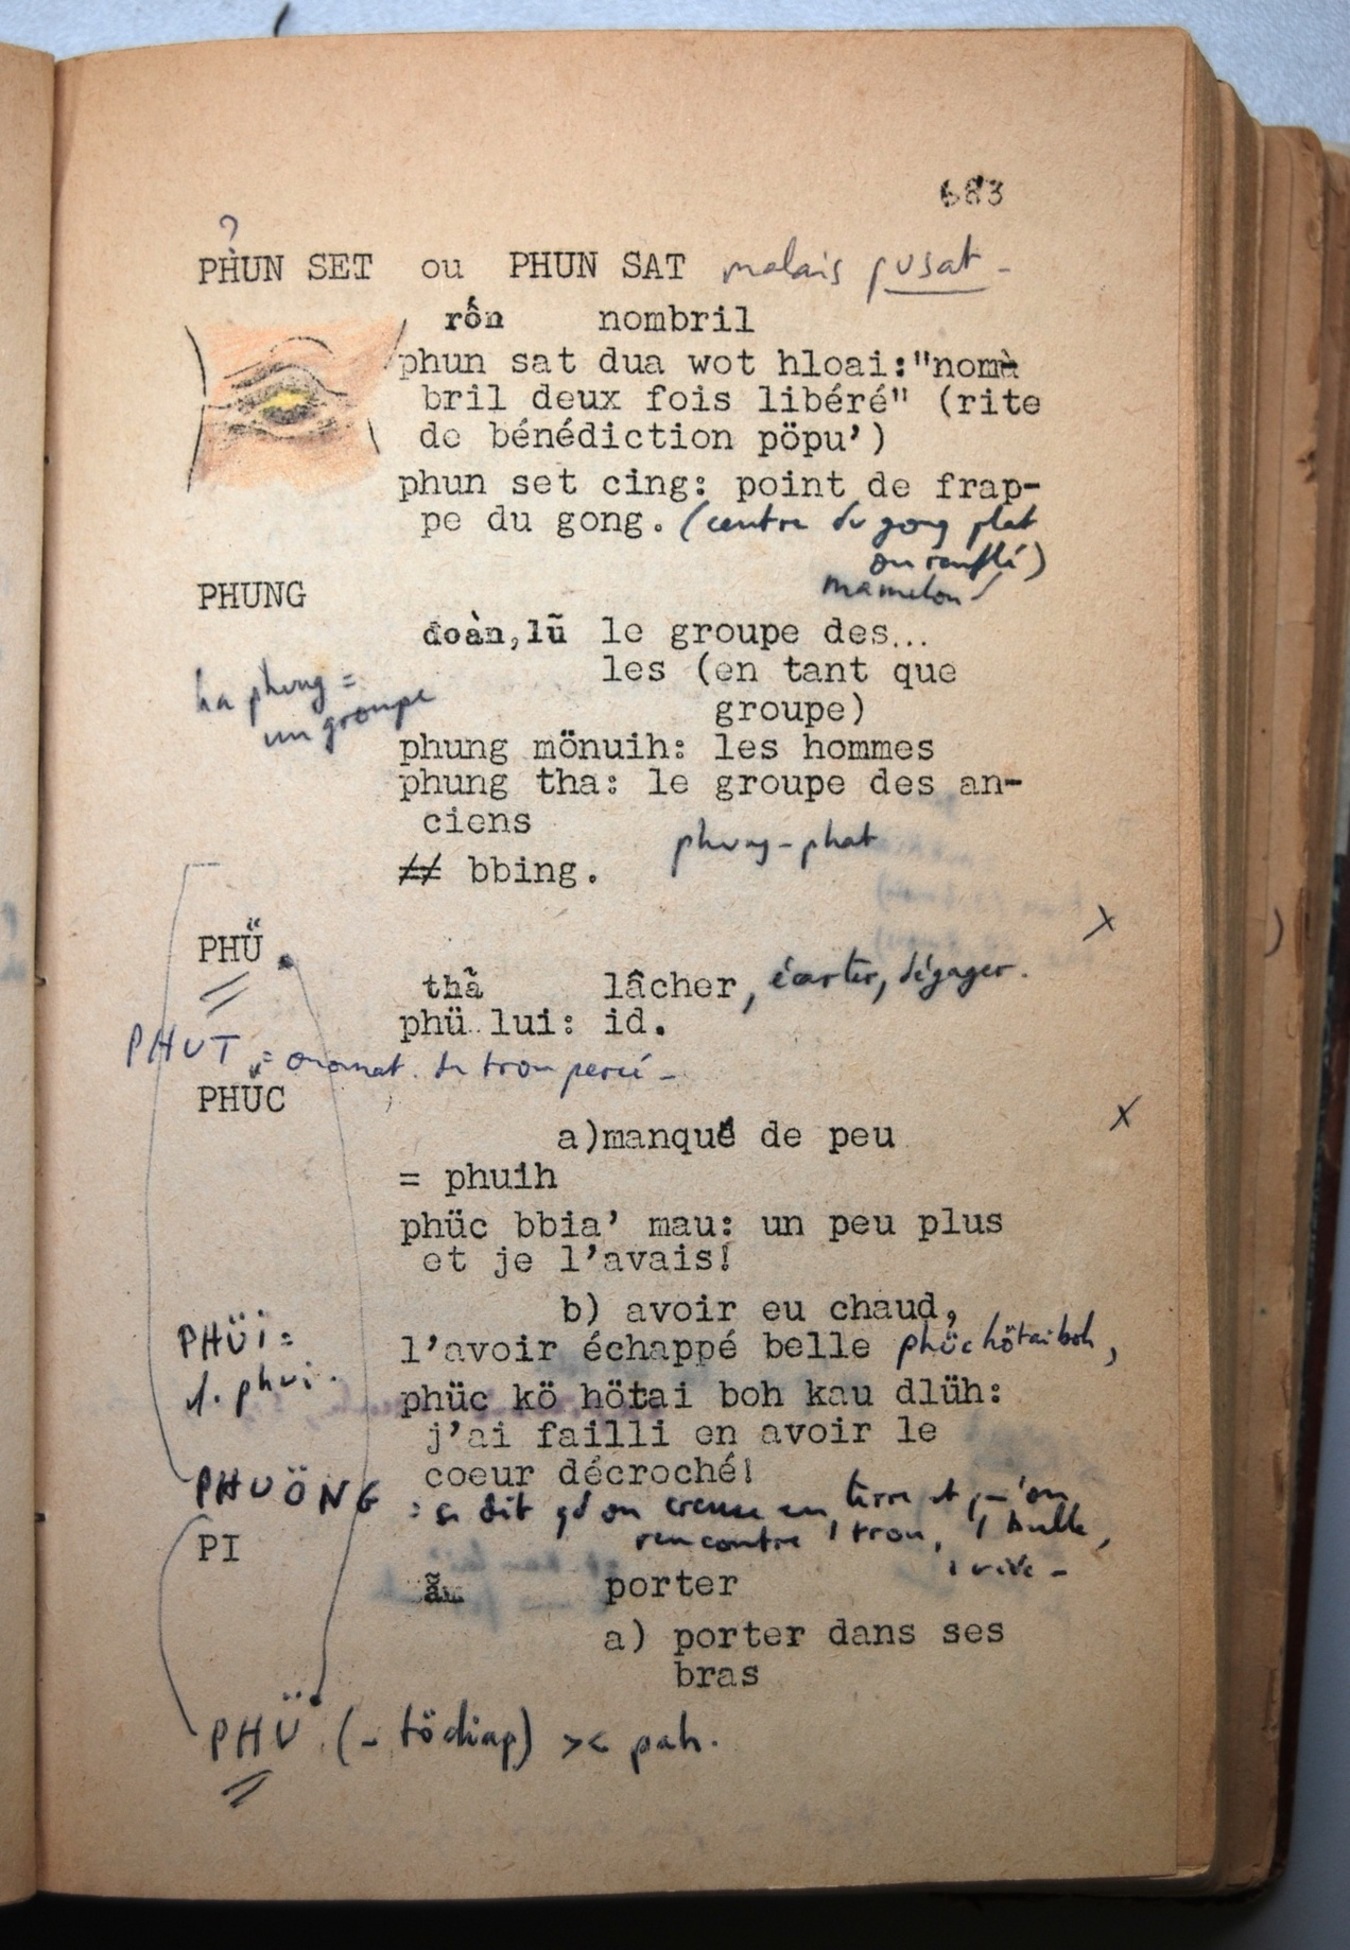 683
PHUN SET ou PHUN SAT malais pusat -
rốn nombril
phun sat dua wot hloai:"nom
bril deux fois libéré" (rite
de bénédiction pöpu')
phun set cing: point de frap-
pe du gong. (centre du gong plat
ou renflé)
mamelon
PHUNG
đoàn,lũ le groupe des...
les (en tant que
groupe)
ha phung =
un groupe
phung mönuih: les hommes
phung tha: le groupe des an-
ciens
phung-phat
bbing.
PHÜ
thả lâcher, écarter, dégager.
phü lui: id.
PHUT = onomat. du trou percé -
PHÜC
a)manqué de peu
= phuih
phüc bbia' mau: un peu plus
et je l'avais!
b) avoir eu chaud,
PHÜI =
d. phui.
l'avoir échappé belle phüc hötai boh,
phüc kö hötai boh kau dlüh:
j'ai failli en avoir le
coeur décroché!
PHUÖNG : se dit qd on creuse en terre et qu'on
rencontre 1 trou, 1 bulle,
PI
porter
a) porter dans ses
bras
PHÜ (- tödiap) >< pah.